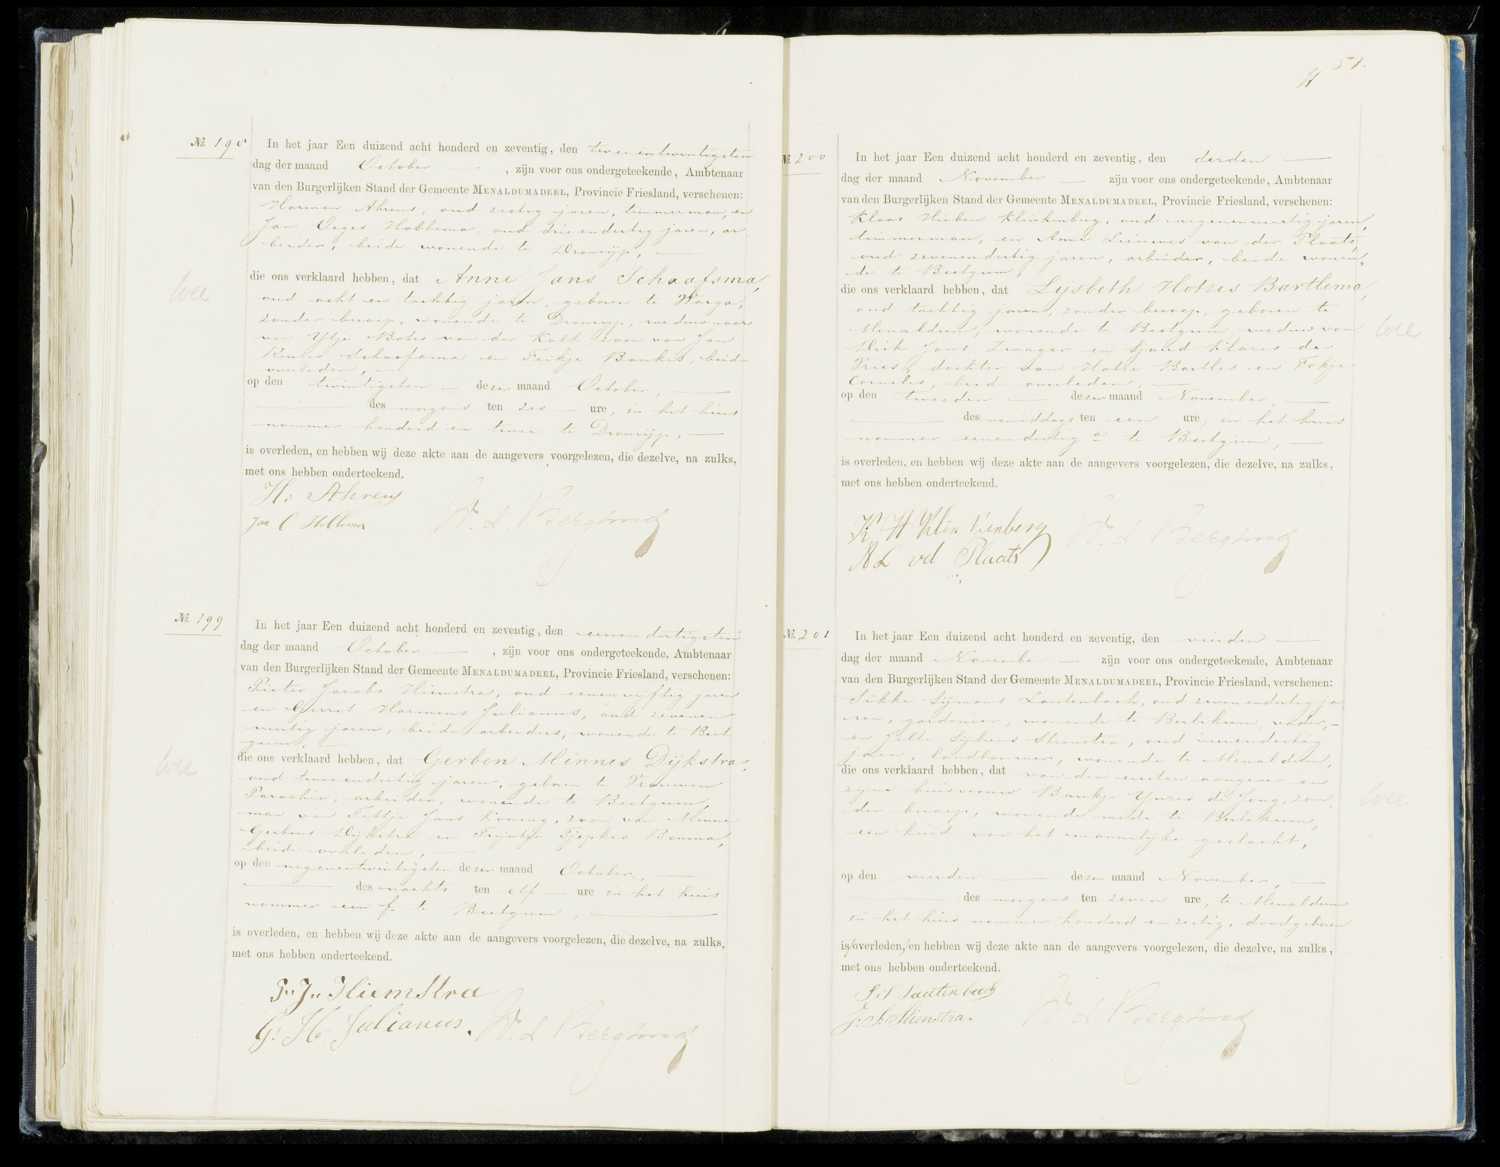 51.
№ 198
In het jaar Een duizend acht honderd en zeventig, den tweeentwintigsten
dag der maand October, zijn voor ons ondergeteekende, Ambtenaar
van den Burgerlijken Stand der Gemeente MENALDUMADEEL, Provincie Friesland, verschenen:
Harmen Ahrens, oud zestig jaren, timmerman, en
Jan Hollema, oud drieendertig jaren, ar-
beider, beide wonende te Dronrijp,
die ons verklaard hebben, dat Anne Jans Schaafsma,
oud acht en tachtig jaren, geboren te Warga,
zonder beroep, wonende te Dronrijp, weduwnaar
van Ytje Botes van der Kalk, zoon van Jan
Schaafsma en Baukes, beide
overleden,
op den twintigsten dezer maand October,
des morgens ten zes ure, in het huis
nommer honderd en twee te Dronrijp,
is overleden, en hebben wij deze akte aan de aangevers voorgelezen, die dezelve, na zulks,
met ons hebben onderteekend.
H. Ahrens
Jan O Hollema
№ 199
In het jaar Een duizend acht honderd en zeventig, den eenendertigsten
dag der maand October, zijn voor ons ondergeteekende, Ambtenaar
van den Burgerlijken Stand der Gemeente MENALDUMADEEL, Provincie Friesland, verschenen:
Pieter Jacobs Hiemstra, oud eenenvijftig jaren
en Gerrit Harmens Julianus, oud zevenen-
twintig jaren, beide arbeiders, wonende te Beet-
gum,
die ons verklaard hebben, dat Gerben Minnes Dijkstra,
oud tweeendertig jaren, geboren te Vrouwen
Parochie, arbeider, wonende te Beetgum,
man van Jans Koning, zoon van Minne
Gerbens Dijkstra en Trijntje Tjepkes Bouma,
beide overleden,
op den negenentwintigsten dezer maand October,
des nachts ten elf ure in het huis
nommer een f. te Beetgum,
is overleden, en hebben wij deze akte aan de aangevers voorgelezen, die dezelve, na zulks,
met ons hebben onderteekend.
P. J. Hiemstra
G. H. Julianus.
№ 200
In het jaar Een duizend acht honderd en zeventig, den derden
dag der maand November zijn voor ons ondergeteekende, Ambtenaar
van den Burgerlijken Stand der Gemeente MENALDUMADEEL, Provincie Friesland, verschenen:
Klaas Klinkenberg, oud negenenveertig jaren,
timmerman, en van der Plaats,
oud zevenendertig jaren, arbeider, beide wonen-
de te Beetgum,
die ons verklaard hebben, dat Lijsbeth Hotzes Barttema,
oud tachtig jaren, zonder beroep, geboren te
Menaldum, wonende te Beetgum, weduwe van
Jans en Sjoerd Klazes de
Vries, dochter van Hotze Bartles en Fokje
Cornelis, beid overleden,
op den tweeden dezer maand November,
des namiddags ten een ure, in het huis
nommer eenendertig a te Beetgum,
is overleden, en hebben wij deze akte aan de aangevers voorgelezen, die dezelve, na zulks,
met ons hebben onderteekend.
K H Klinkenberg
A L vd Plaats
№ 201
In het jaar Een duizend acht honderd en zeventig, den vierden
dag der maand November zijn voor ons ondergeteekende, Ambtenaar
van den Burgerlijken Stand der Gemeente MENALDUMADEEL, Provincie Friesland, verschenen:
Sikke Sijmons Lautenbach, oud zevenendertig ja-
ren, gardenier, wonende te Berlikum, vader,
en Jelle Hiemstra, oud
jaren, landbouwer, wonende te Menaldum,
die ons verklaard hebben, dat van den eersten aangever en
zijne huisvrouw Baukje Ynzes de Jong, zon-
der beroep, wonende mede te Berlikum,
een kind van het mannelijke geslacht,
op den vierden dezer maand November,
des morgens ten zeven ure, te Menaldum
in het huis nommer honderd en zestig, doodgeboren
is overleden, en hebben wij deze akte aan de aangevers voorgelezen, die dezelve, na zulks,
met ons hebben onderteekend.
S S Lautenbach
J. S. Hiemstra.